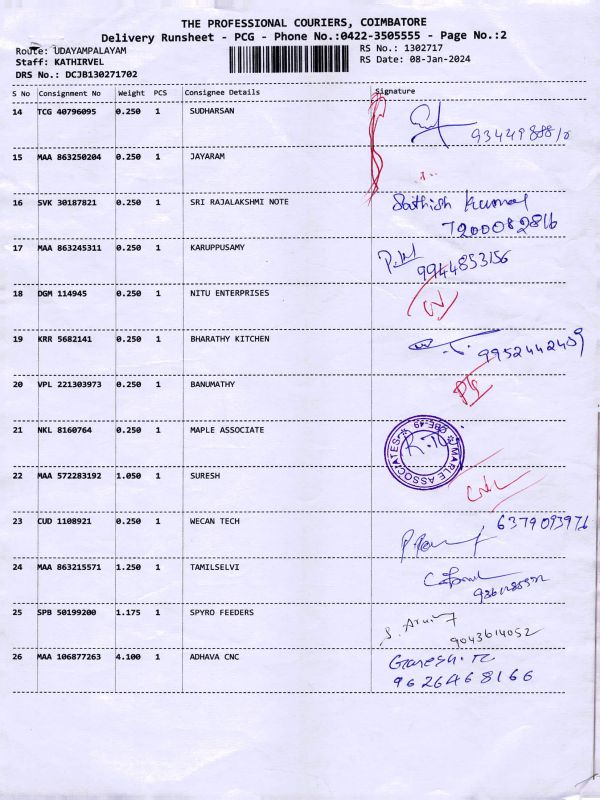 THE PROFESSIONAL COURIERS, COIMBATORE
Delivery Runsheet - PCG - Phone No.:0422-3505555 - Page No.:2
Route: UDAYAMPALAYAM RS No.: 1302717
Staff: KATHIRVEL RS Date: 08-Jan-2024
DRS No.: DCJB130271702
S No Consignment No Weight PCS Consignee Details Signature
14 TCG 40796095 0.250 1 SUDHARSAN
15 MAA 863250204 0.250 1 JAYARAM
16 SVK 30187821 0.250 1 SRI RAJALAKSHMI NOTE Sathish Kumar
7200082816
17 MAA 863245311 0.250 1 KARUPPUSAMY
9944853156
18 DGM 114945 0.250 1 NITU ENTERPRISES
19 KRR 5682141 0.250 1 BHARATHY KITCHEN
9952442409
20 VPL 221303973 0.250 1 BANUMATHY
21 NKL 8160764 0.250 1 MAPLE ASSOCIATE MAPLE ASSOCIATES CBE-49
22 MAA 572283192 1.050 1 SURESH
23 CUD 1108921 0.250 1 WECAN TECH 6379093976
24 MAA 863215571 1.250 1 TAMILSELVI
25 SPB 50199200 1.175 1 SPYRO FEEDERS
9043614052
26 MAA 106877263 4.100 1 ADHAVA CNC Ganesh.
9626468166